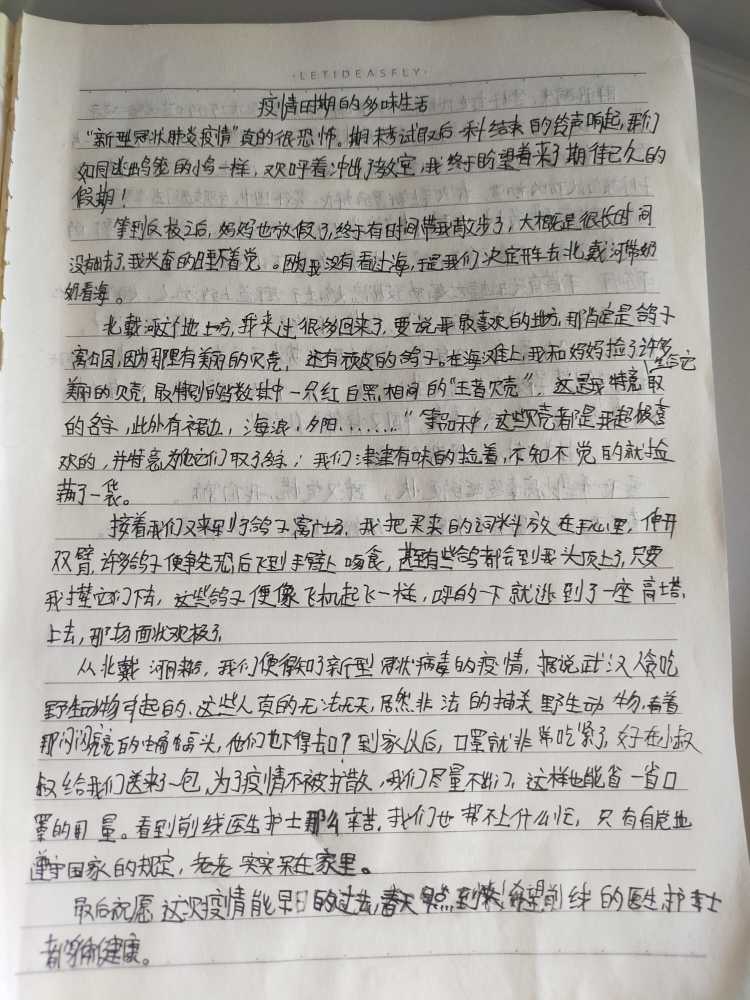 ·LETIDEASFLY·
疫情时期的多味生活
"新型冠状肺炎疫情"真的很恐怖。期末考试最后一科结束的铃声响起,我们
如同逃出鸟笼的小鸟一样,欢呼着冲出了教室,我终于盼望着来了期待已久的
假期!
等到反校之后,妈妈也放假了,终于有时间带我散步了,大概是很长时间
没有出去了,我兴奋的睡不着觉。因为我没有看过海,于是我们决定开车去北戴河带奶
奶看海。
北戴河这个地方,我来过很多回来了,要说我最喜欢的地方,那肯定是鸽子
窝公园,因为那里有美丽的贝壳,还有顽皮的鸽子。在海滩上,我和妈妈捡了许多
美丽的贝壳,最特别的当数其中一只红白黑相间的"王者贝壳",这是我特意给它取
的名字,此外有裙边,海浪,夕阳........"等品种,这些贝壳都是我超级喜
欢的,并特意为它们取了名字;我们津津有味的捡着,不知不觉的就捡
满了一袋。
接着我们又来到了鸽子窝广场,我把买来的饲料放在手心里,伸开
双臂,许多鸽子便争先恐后飞到手臂上啄食,甚至有些鸽都会到我头顶上了,只要
我撵它们下去,这些鸽子便像飞机起飞一样,呼的一下就逃到了一座高塔
上去,那场面壮观极了
从北戴河回来后,我们便得知了新型冠状病毒的疫情,据说武汉人贪吃
野生动物引起的,这些人真的无法无天,居然非法的捕杀野生动物,看着
那闪闪亮的 头,他们也下得去口?到家以后,口罩就非常吃紧了,好在小叔
叔给我们送来了一包,为了疫情不被扩散,我们尽量不出门,这样也能省一省口
罩的用量。看到前线医生护士那么辛苦,我们也帮不上什么忙,只有自觉地
遵守国家的规定,老老实实呆在家里。
最后祝愿这次疫情能早日的过去,春天早点到来!希望前线的医生护士
都 健康。